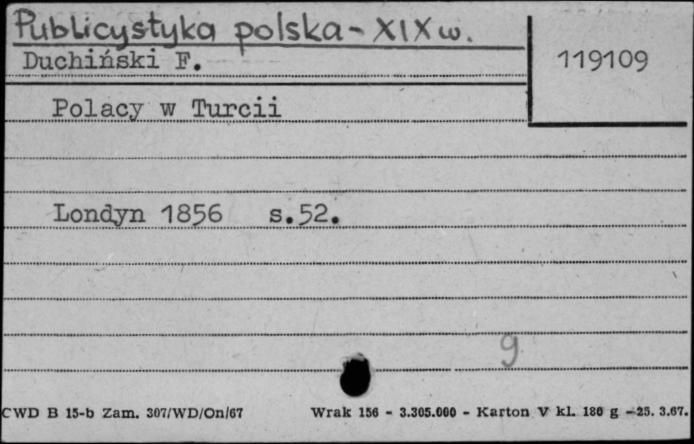 Publicystyka polska - XIX w.
Duchiński F.
119109
Polacy w Turcii
Londyn 1856 s.52.
9
CWD B 15-b Zam. 307/WD/On/67 Wrak 156 - 3.305.000 - Karton V kl. 180 g -25. 3.67.